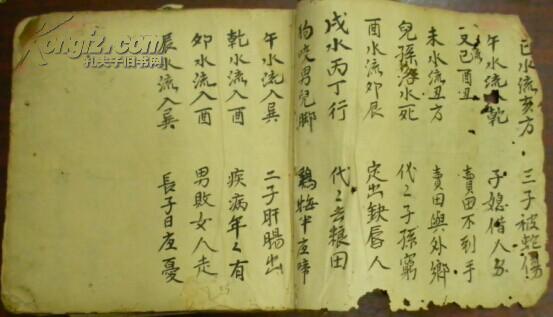 巳水流亥方 三子被蛇傷
午水流乾 子媳借人
又己酉丑 賣田不到手
未水流丑方 賣田與外鄉
兒孫落水死 代々子孫窮
酉水流卯辰 定出缺唇人
戌水丙丁行 代々去粮田
咬男兒脚 鷄半夜啼
午水流入巽 二子肝腸出
乾水流入酉 疾病年々有
卯水流入酉 男敗女人走
辰水流入巽 長子日夜憂
Kongfz.com
孔夫子旧书网